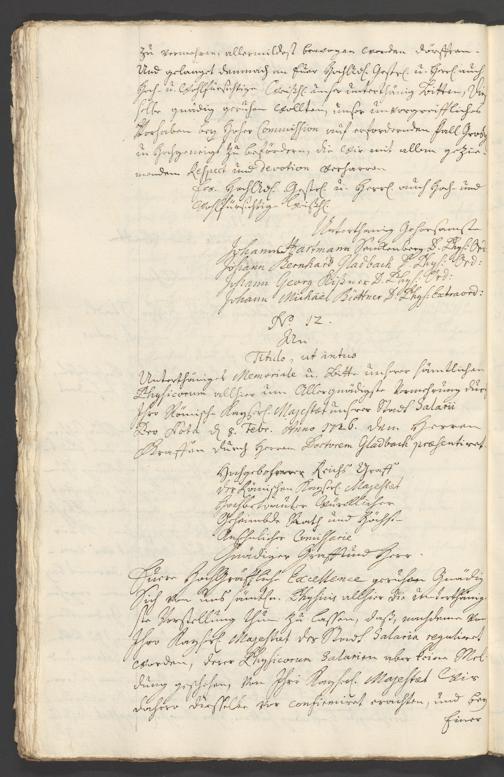 zu vermehren allermildest bewogen werden dörfften.
Und gelanget demnach an Euer HochAdl. Gestrl. u. Herrl. auch
Hoch- u. Wohlfürsichtige unser unterthänig bitten,
selbe gnädig geruhen wollten, unser unvorgreiffliches
Vorhaben bey Hoher Commission auf erfordernden Fall
u. Hochgeneigt zu befördern, die wir mit allem gezie-
menden Respect und devotion verharren
Ew. HochAdl. Gestrl. u. Herrl. auch Hoch- und
Wohlfürsichtige
Unterthänig Gehorsamste
Johann Hartmann Senckenberg D. Phys: Ord:
Johann Bernhard Gladbach D. Phys: Ord:
Johann Georg Kißner D. Phys: Ord:
Johann Michael Büttner D. Phys: Extraord:
No. 12.
An
Titulo, ut antea
Unterthäniges Memoriale u. Bitte unserer sämtlichen
Physicorum allhier um Allergnädigste Vermehrung durch
Ihro Römisch Kayserl. Majestät unserer Stadt Salarii
Dero den 8. Febr. Anno 1726. dem Herren
Graffen durch Herren Doctorem Gladbach praesentiret
Hochgebohrner Reichs Graff
der Römischen Kayserl. Majestät
Hochbetrauter Würcklicher
Geheimbde Rath und Höchst
Ansehnlicher Commissarie
Gnädiger Graff und Herr.
Euere HochGräffliche Excellence geruhen Gnädig
Sich von uns sämtl. Physicis allhier die unterthänig-
ste Vorstellung thun zu lassen, daß, nachdeme von
Ihro Kayserl. Majestät der Stadt Salaria reguliret
worden, derer Physicorum Salarien aber keine Mel-
dung geschehen, von Ihro Kayserl. Majestät Wir
dahero dieselbe vor confirmiret erachten, und bey
Einer